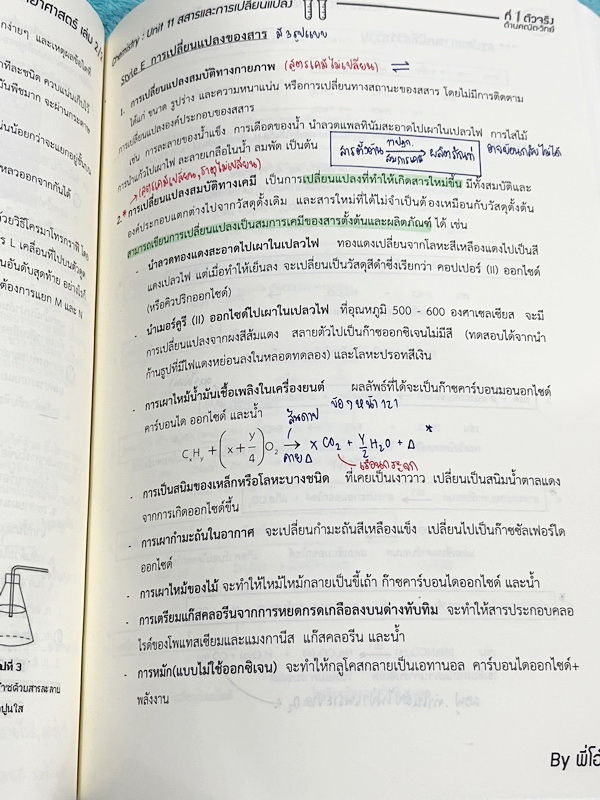 Chemistry : Unit 11 สสารและการเปลี่ยนแปลง
ที่ 1 ตัวจริง
ด้านคณิตวิทย์
Style E การเปลี่ยนแปลงของสาร มี 3 รูปแบบ
1. การเปลี่ยนแปลงสมบัติทางกายภาพ (สูตรเคมีไม่เปลี่ยน) ⇌
ได้แก่ ขนาด รูปร่าง และความหนาแน่น หรือการเปลี่ยนทางสถานะของสสาร โดยไม่มีการติดตาม
การเปลี่ยนแปลงองค์ประกอบของสสาร
เช่น การละลายของน้ำแข็ง การเดือดของน้ำ นำลวดแพลทินัมสะอาดไปเผาในเปลวไฟ การใส่ไม้
การนำแก้วไปเผาไฟ ละลายเกลือในน้ำ ลมพัด เป็นต้น
สารตั้งต้น ผลิตภัณฑ์
สมการเคมี
(สูตรเคมีเปลี่ยน, ธาตุไม่เปลี่ยน)
2. การเปลี่ยนแปลงสมบัติทางเคมี เป็นการเปลี่ยนแปลงที่ทำให้เกิดสารใหม่ขึ้น มีทั้งสมบัติและ
องค์ประกอบแตกต่างไปจากวัสดุตั้งเดิม และสารใหม่ที่ได้ไม่จำเป็นต้องเหมือนกับวัสดุตั้งต้น
สามารถเขียนการเปลี่ยนแปลงเป็นสมการเคมีของสารตั้งต้นและผลิตภัณฑ์ ได้ เช่น
- นำลวดทองแดงสะอาดไปเผาในเปลวไฟ ทองแดงเปลี่ยนจากโลหะสีเหลืองแดงไปเป็นสี
แดงเปลวไฟ แต่เมื่อทำให้เย็นลง จะเปลี่ยนเป็นวัสดุสีดำซึ่งเรียกว่า คอปเปอร์ (II) ออกไซด์
(หรือคิวปริกออกไซด์)
- นำเมอร์คูรี (II) ออกไซด์ไปเผาในเปลวไฟ ที่อุณหภูมิ 500 - 600 องศาเซลเซียส จะมี
การเปลี่ยนแปลงจากผงสีส้มแดง สลายตัวไปเป็นก๊าซออกซิเจนไม่มีสี (ทดสอบได้จากนำ
ก้านธูปที่มีไฟแดงหย่อนลงในหลอดทดลอง) และโลหะปรอทสีเงิน
- การเผาไหม้น้ำมันเชื้อเพลิงในเครื่องยนต์ ผลลัพธ์ที่ได้จะเป็นก๊าซคาร์บอนมอนอกไซด์
คาร์บอนได ออกไซด์ และน้ำ สันดาป ข้อ 9 หน้า 121
CxHy + (x + y/4) O2 → x CO2 + y/2 H2O + Δ *
คาย Δ เรือนกระจก
- การเป็นสนิมของเหล็กหรือโลหะบางชนิด ที่เคยเป็นเงาวาว เปลี่ยนเป็นสนิมน้ำตาลแดง
จากการเกิดออกไซด์ขึ้น
- การเผากำมะถันในอากาศ จะเปลี่ยนกำมะถันสีเหลืองแข็ง เปลี่ยนไปเป็นก๊าซซัลเฟอร์ได
ออกไซด์
- การเผาไหม้ของไม้ จะทำให้ไม้ไหม้กลายเป็นขี้เถ้า ก๊าซคาร์บอนไดออกไซด์ และน้ำ
- การเตรียมแก๊สคลอรีนจากการหยดกรดเกลือลงบนด่างทับทิม จะทำให้สารประกอบคลอ
ไรด์ของโพแทสเซียมและแมงกานีส แก๊สคลอรีน และน้ำ
- การหมัก(แบบไม่ใช้ออกซิเจน) จะทำให้กลูโคสกลายเป็นเอทานอล คาร์บอนไดออกไซด์+
พลังงาน